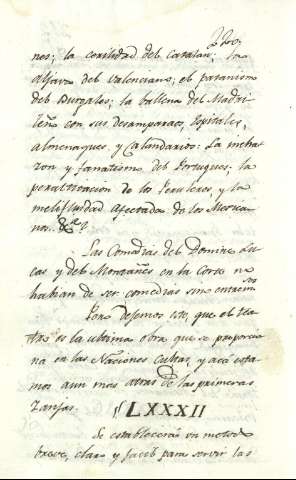 nes; la cerilidad del Catalan; la
del Valenciano; el
del Burgales; la ballena del Madri-
leño con sus desamparaos, ospitales,
almenaques, y Calandarios: La incha-
zon y fanatismo del Portugues; la
de los Peruleros, y la
melifluidad afectada de los Mexica
nos.. &ª?
Las Comedias del Domine Lu-
cas y del Montañes en la Corte no
habian de ser comedias sino entremeses
Pero dejemos esto, que el tea-
tro es la ultima obra que se proporcio
na en las Naciones Cultas, y acá esta-
mos aun mas atras de las primeras
zanjas.
§ LXXXII
Se establecerá un metodo
breve, claro y facil para servir las